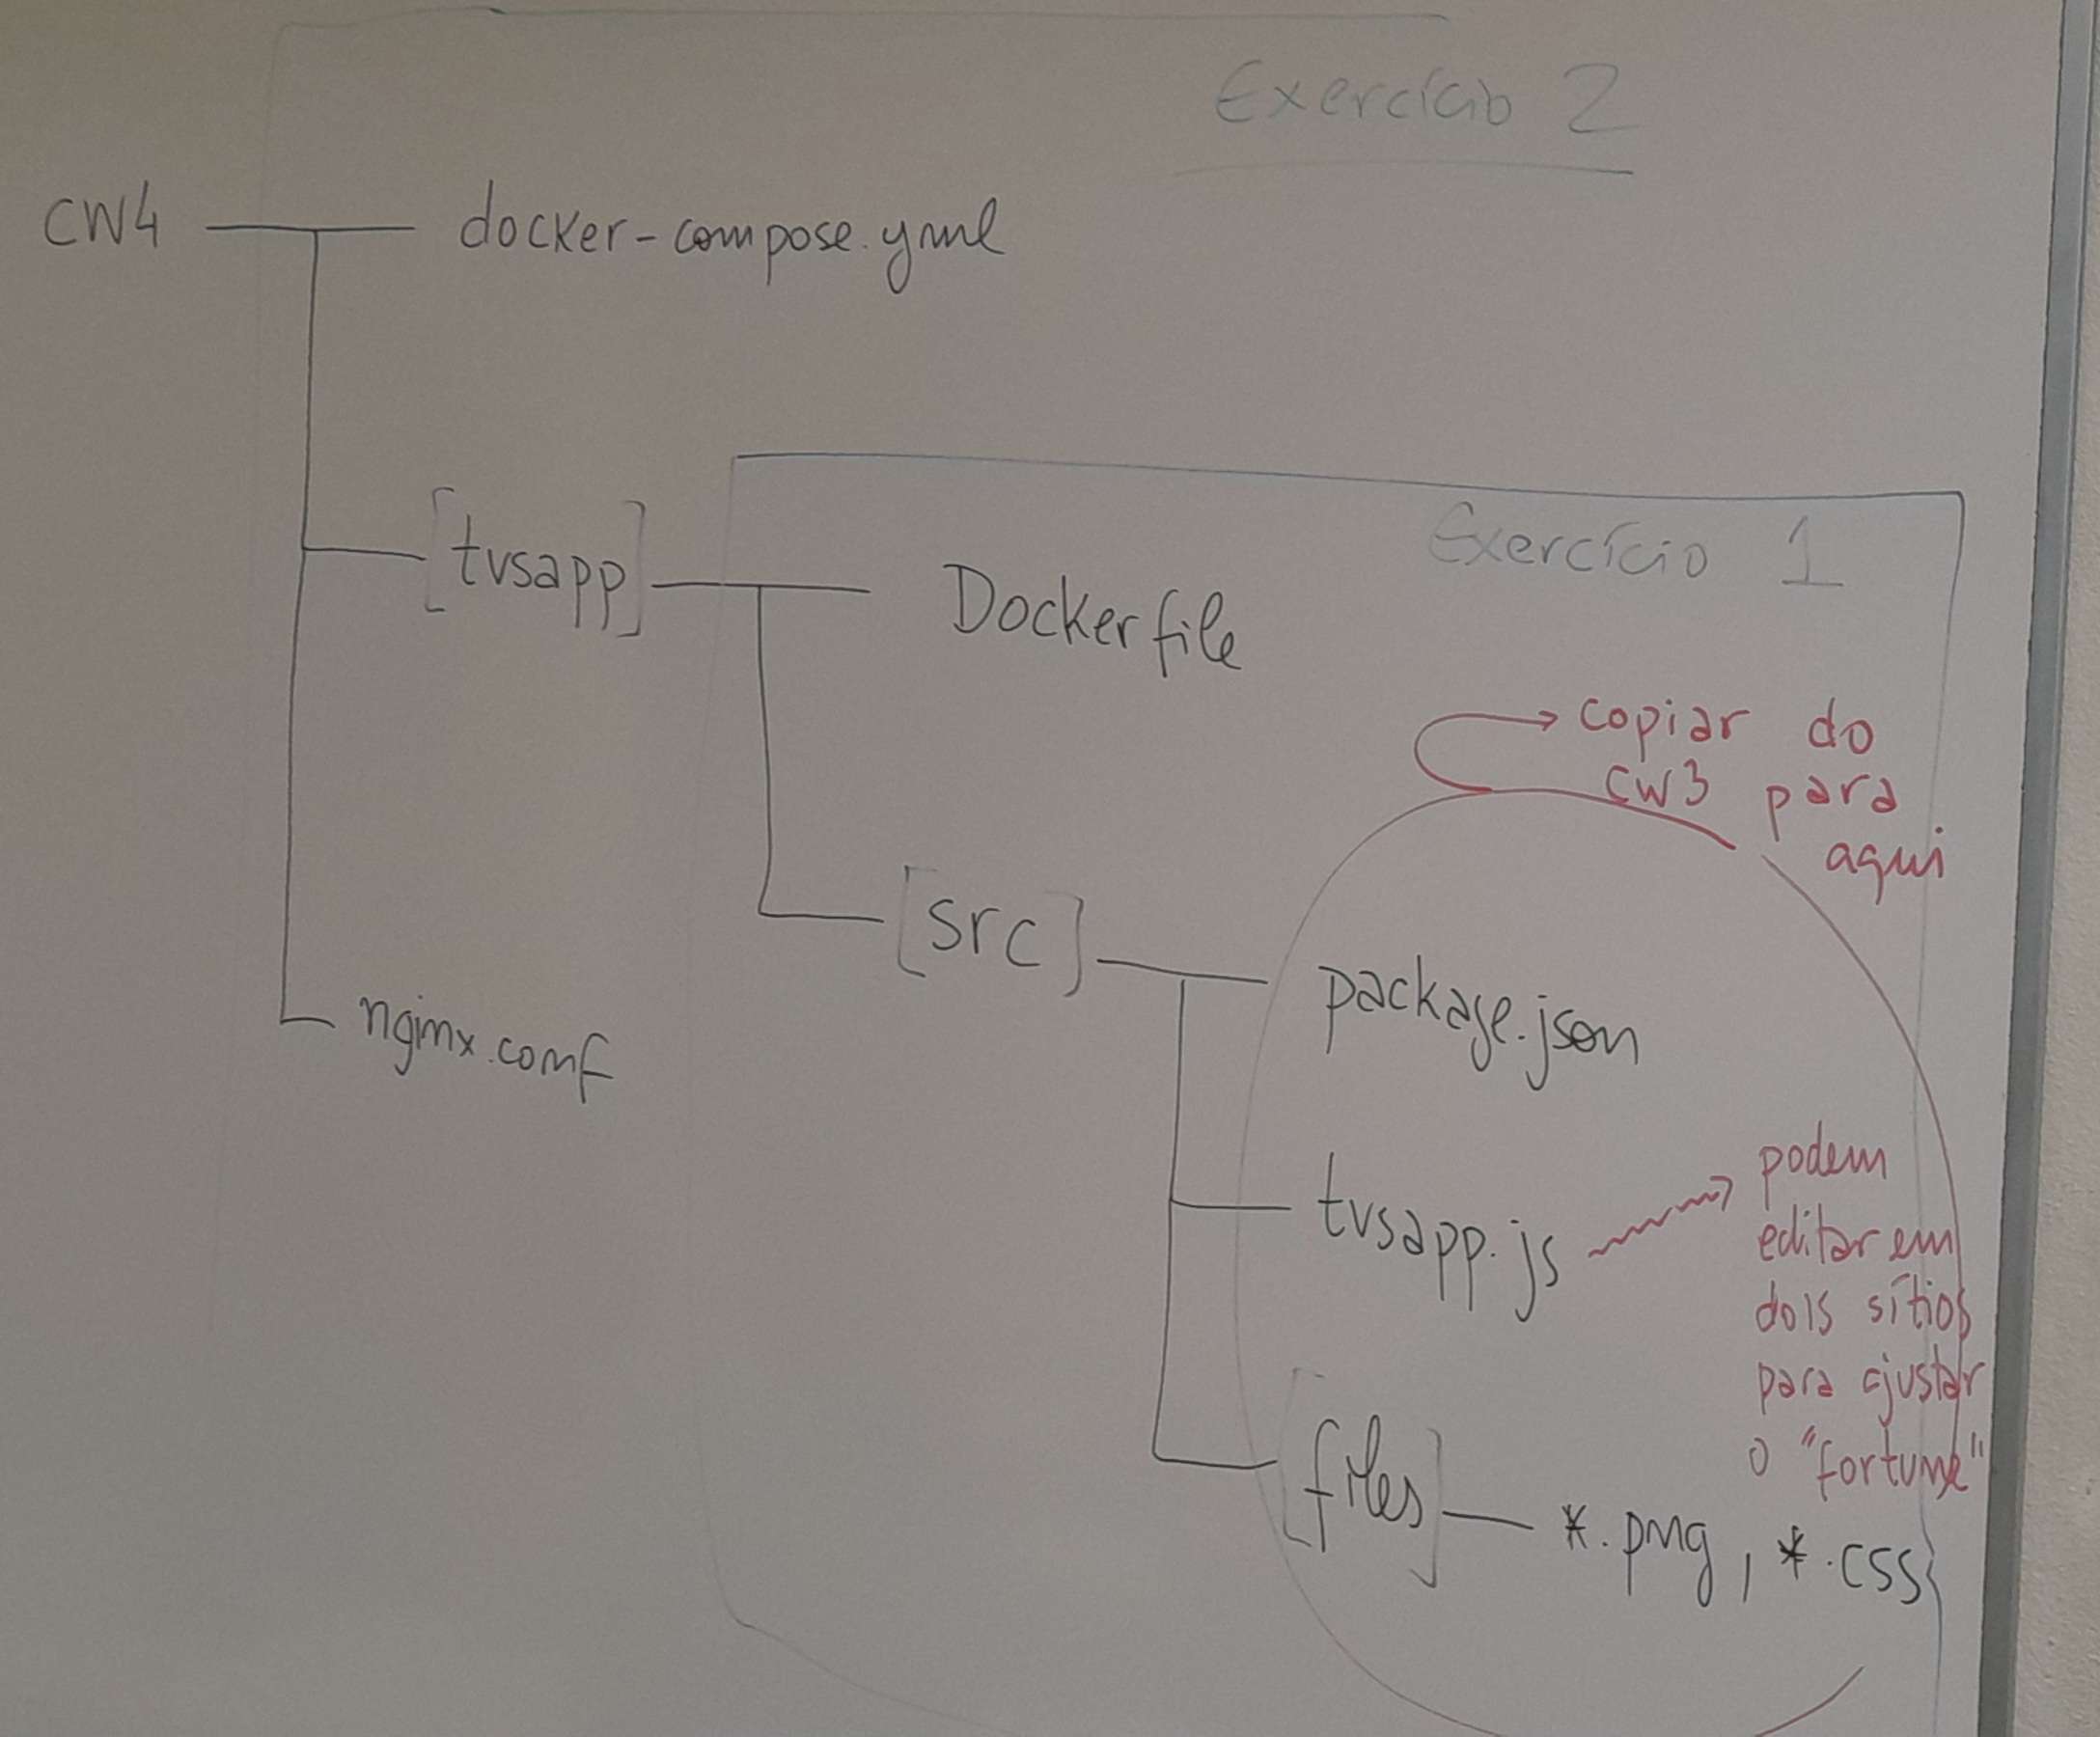 Exercício 2
CW4
docker-compose.yml
Exercício 1
[tvsapp]
Dockerfile
copiar do
cw3 para
aqui
[src]
package.json
nginx.conf
tvsapp.js
podem
editar em
dois sítios
para ajustar
o "fortune"
[files]
*.png, *.css